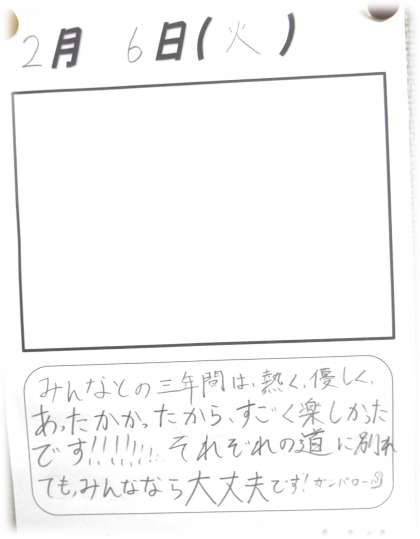 2月 6日(火)
みんなとの三年間は、熱く、優しく、
あったかかったから、すごく楽しかった
です!!!!!!!! それぞれの道に別れ
ても、みんななら大丈夫です!ガンバロー